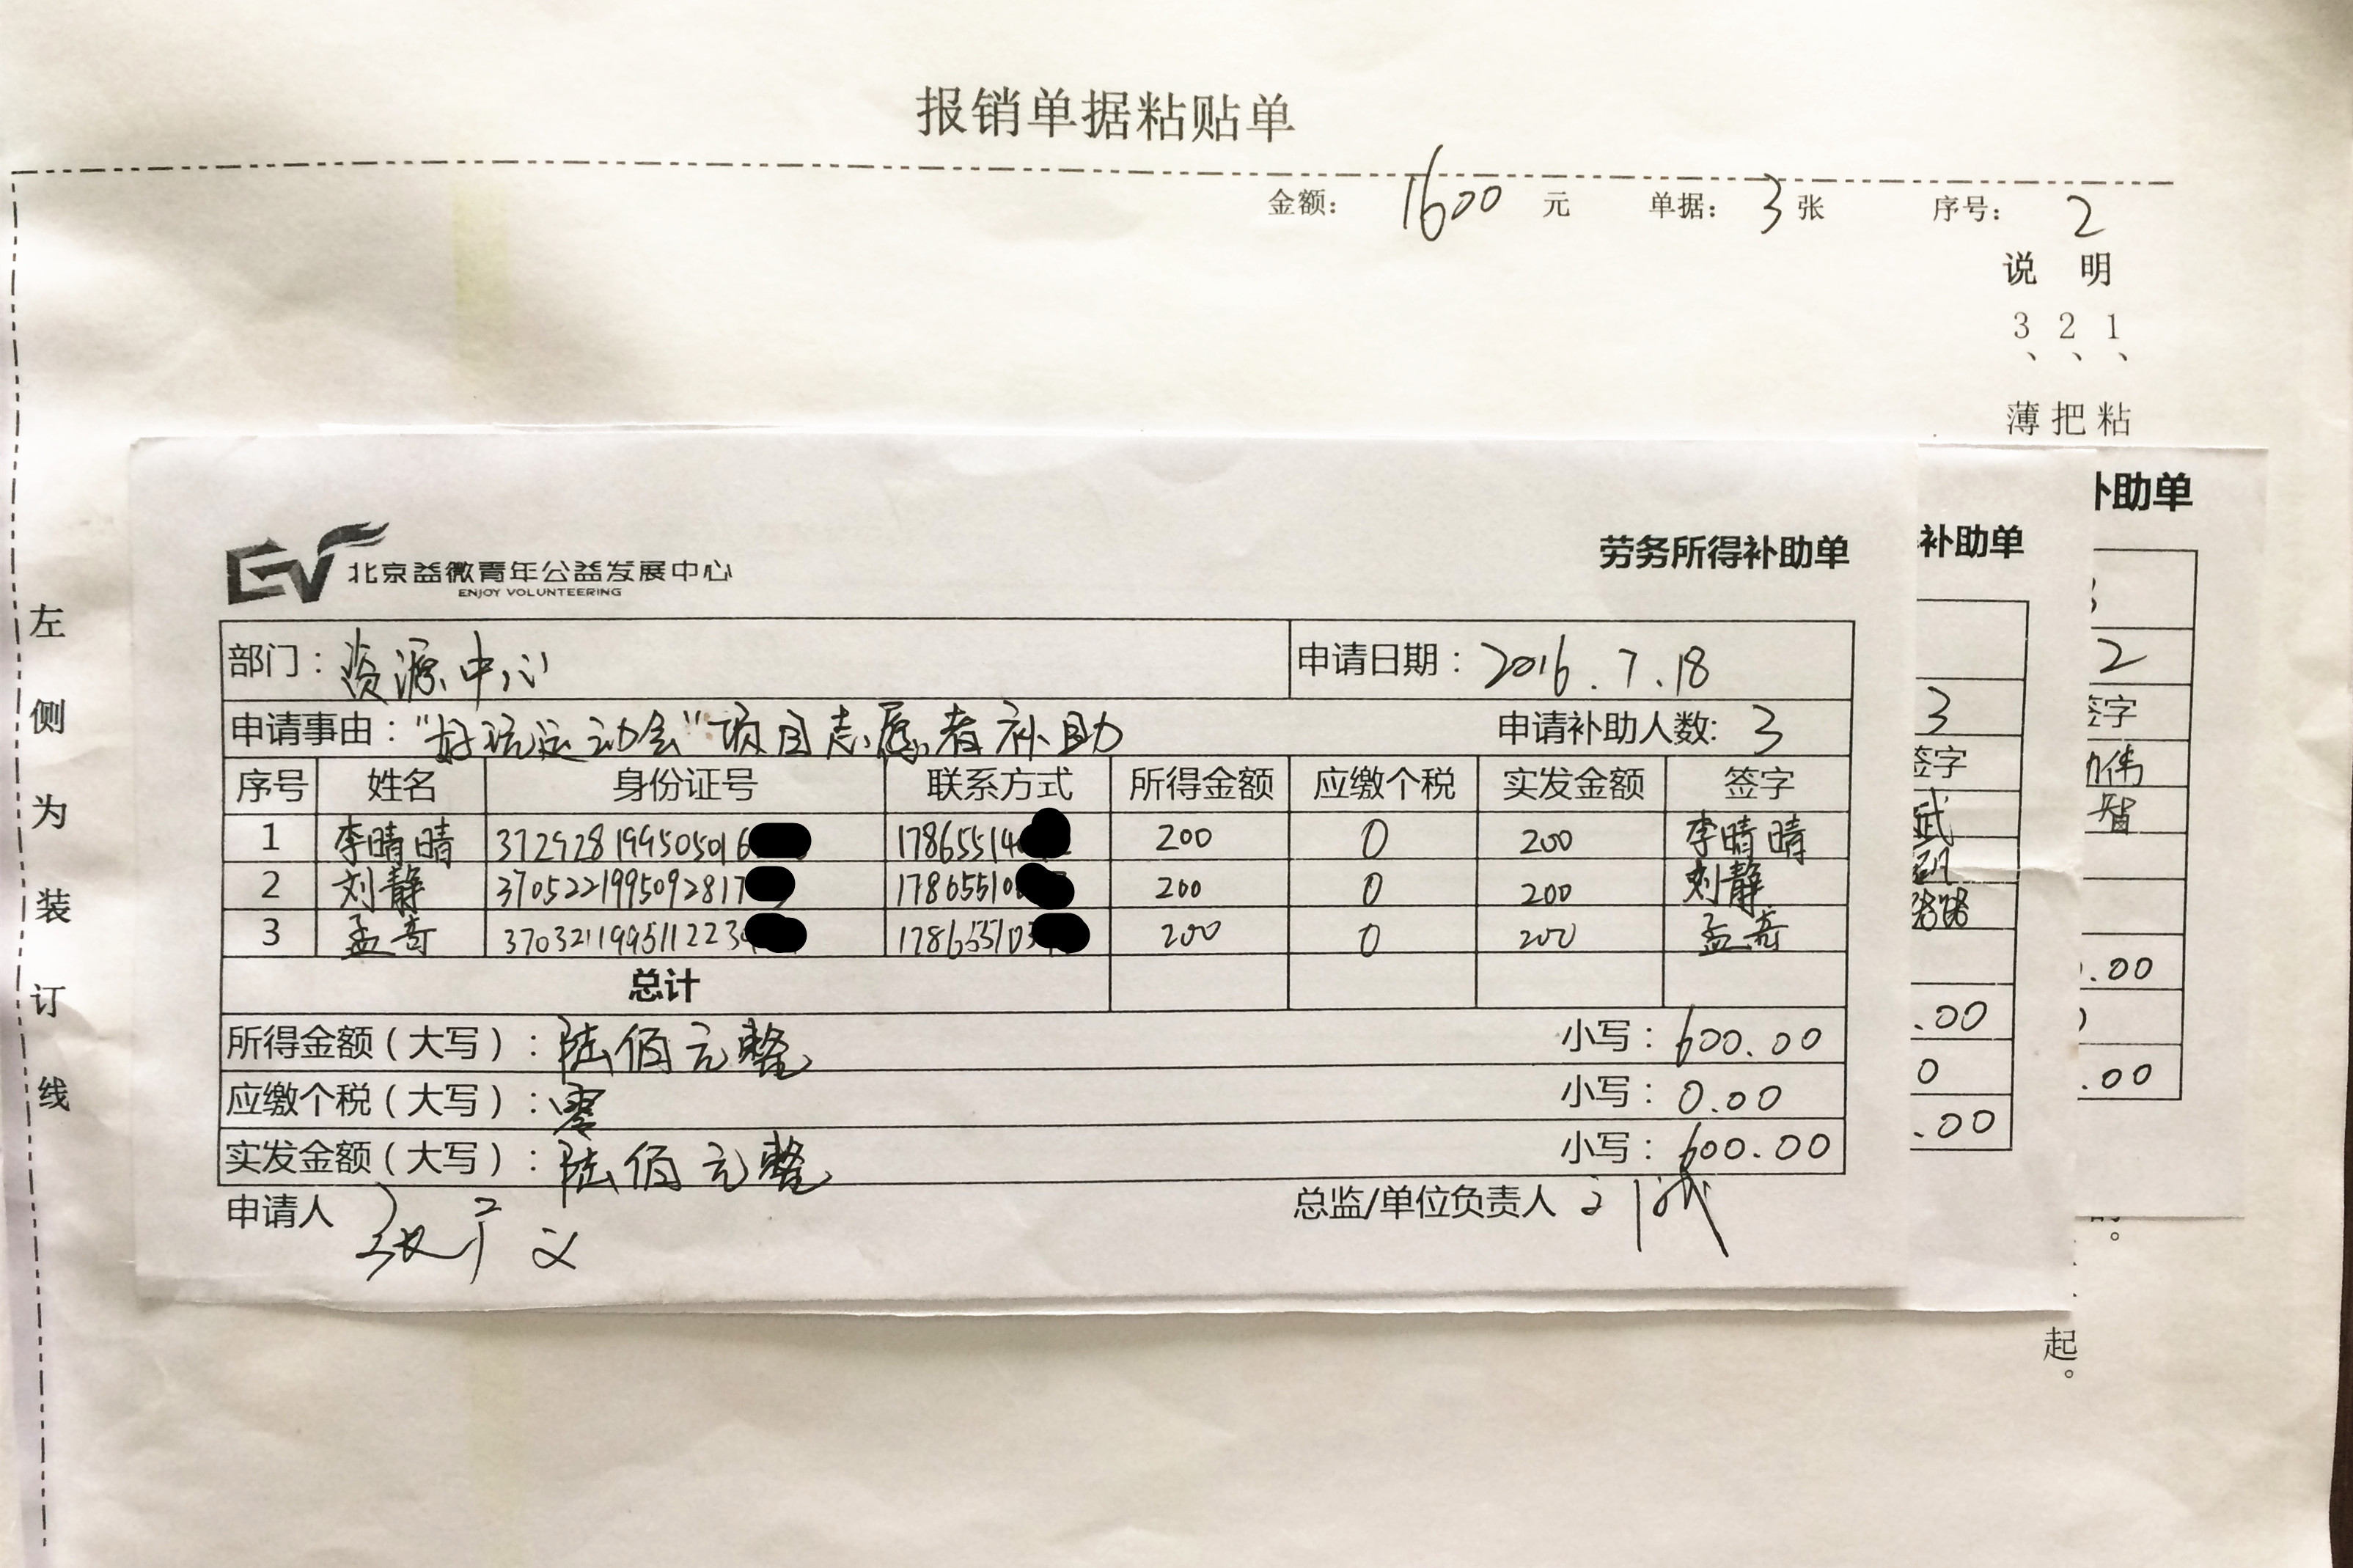 报销单据粘贴单
金额： 1600 元 单据： 3 张 序号： 2
说明
1、粘
2、把
3、薄
左侧为装订线
卜助单
补助单
EV 北京益微青年公益发展中心
ENJOY VOLUNTEERING
劳务所得补助单
部门：资源中心 申请日期：2016.7.18
申请事由："好玩运动会"项目志愿者补助 申请补助人数: 3
序号 姓名 身份证号 联系方式 所得金额 应缴个税 实发金额 签字
1 李晴晴 372928199505016 178655140 200 0 200 李晴晴
2 刘静 3705221995092817 17865510 200 0 200 刘静
3 孟奇 370321199511223 178655103 200 0 200 孟奇
总计
所得金额（大写）：陆佰元整 小写：600.00
应缴个税（大写）：零 小写：0.00
实发金额（大写）：陆佰元整 小写：600.00
申请人 张广义 总监/单位负责人
3
签字
武
.00
0
.00
2
签字
伟
智
.00
.00
起。